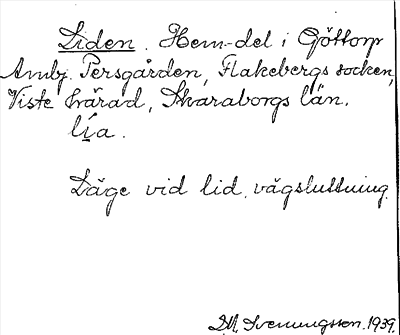 Liden. Hem-del i Göttorp
Amby. Persgården, Flakebergs socken,
Viste härad, Skaraborgs län.
li̱a.
Läge vid lid, vägsluttning.
D.M. Svenungsson. 1939.